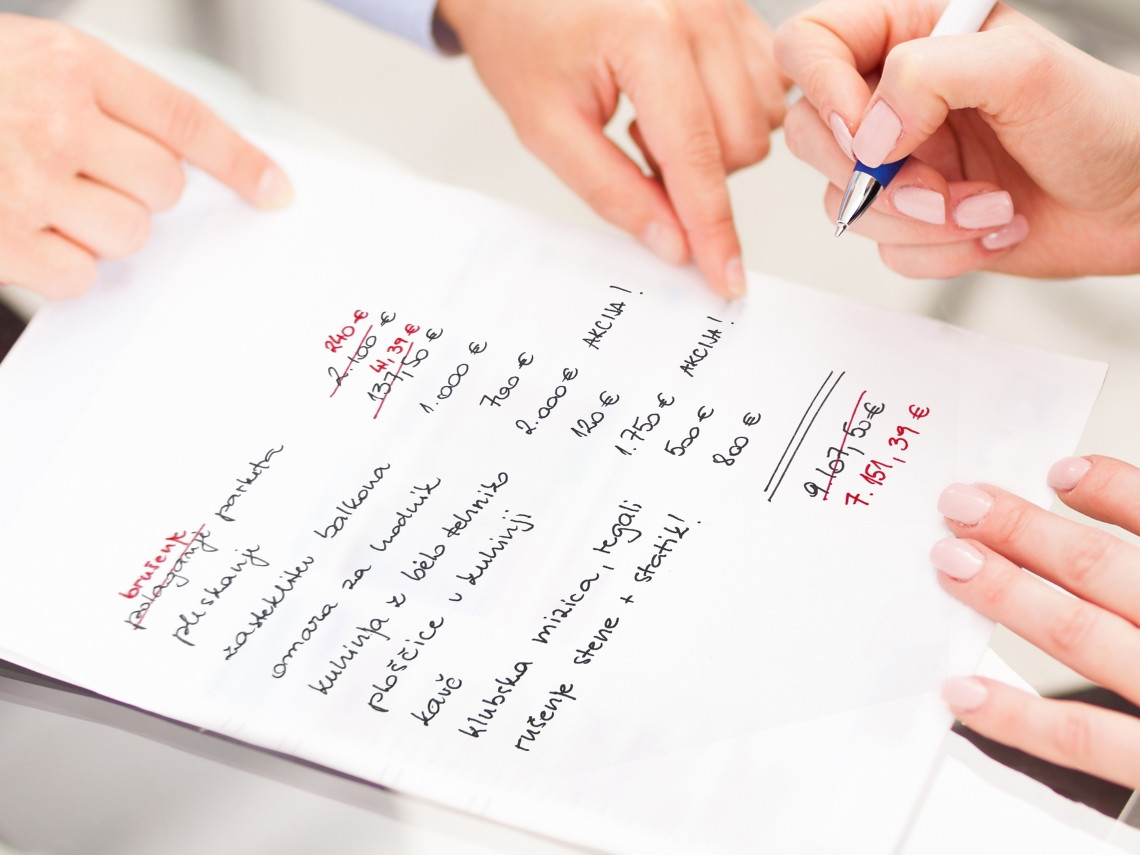 brušenje 240 €
polaganje parketa 2.100 €
41,39 €
pleskanje 137,50 €
zasteklitev balkona 1.000 €
omara za hodnik 700 €
kuhinja z belo tehniko 2.000 € AKCIJA!
ploščice v kuhinji 120 €
kavč 1.750 € AKCIJA!
klubska mizica, regali 500 €
rušenje stene + statik! 800 €
9.107,50 €
7.151,39 €